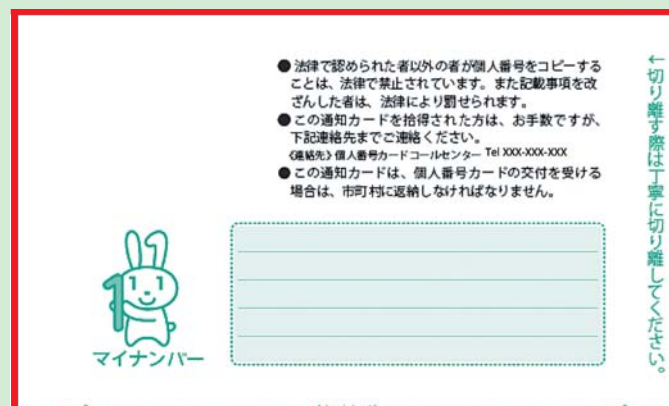 ● 法律で認められた者以外の者が個人番号をコピーする
ことは、法律で禁止されています。また記載事項を改
ざんした者は、法律により罰せられます。
● この通知カードを拾得された方は、お手数ですが、
下記連絡先までご連絡ください。
《連絡先》個人番号カードコールセンター Tel XXX-XXX-XXX
● この通知カードは、個人番号カードの交付を受ける
場合は、市町村に返納しなければなりません。
←切り離す際は丁寧に切り離してください。
1
マイナンバー